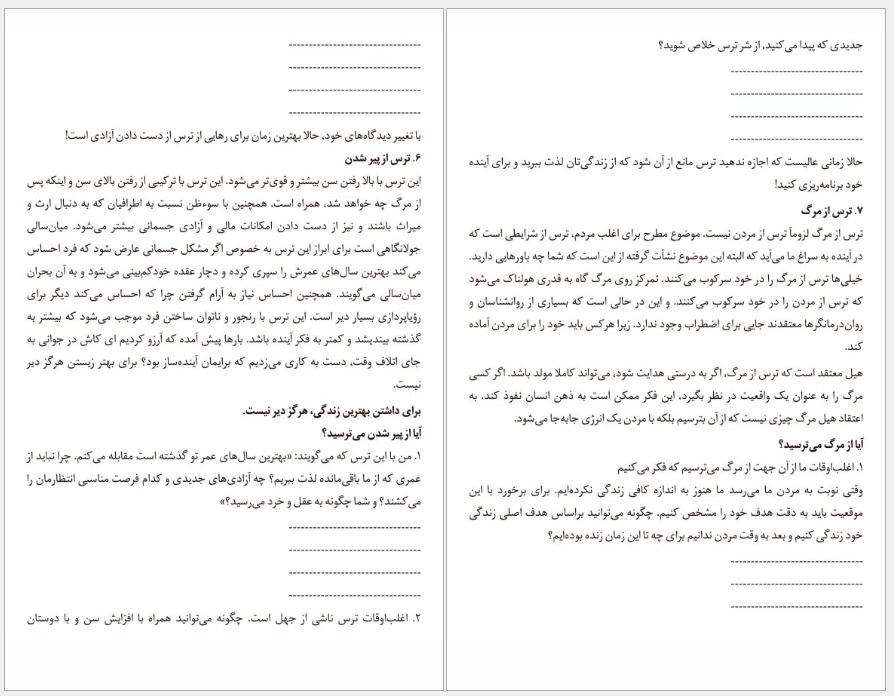 ---------------------------------
---------------------------------
---------------------------------
---------------------------------
با تغییر دیدگاه‌های خود، حالا بهترین زمان برای رهایی از ترس از دست دادن آزادی است!
۶. ترس از پیر شدن
این ترس با بالا رفتن سن بیشتر و قوی‌تر می‌شود. این ترس با ترکیبی از رفتن بالای سن و اینکه پس
از مرگ چه خواهد شد، همراه است. همچنین با سوءظن نسبت به اطرافیان که به دنبال ارث و
میراث باشند و نیز از دست دادن امکانات مالی و آزادی جسمانی بیشتر می‌شود. میان‌سالی
جولانگاهی است برای ابراز این ترس به خصوص اگر مشکل جسمانی عارض شود که فرد احساس
می‌کند بهترین سال‌های عمرش را سپری کرده و دچار عقده خودکم‌بینی می‌شود و به آن بحران
میان‌سالی می‌گویند. همچنین احساس نیاز به آرام گرفتن چرا که احساس می‌کند دیگر برای
رؤیاپردازی بسیار دیر است. این ترس با رنجور و ناتوان ساختن فرد موجب می‌شود که بیشتر به
گذشته بیندیشد و کمتر به فکر آینده باشد. بارها پیش آمده که آرزو کردیم ای کاش در جوانی به
جای اتلاف وقت، دست به کاری می‌زدیم که برایمان آینده‌ساز بود؟ برای بهتر زیستن هرگز دیر
نیست.
برای داشتن بهترین زندگی، هرگز دیر نیست.
آیا از پیر شدن می‌ترسید؟
۱. من با این ترس که می‌گویند: «بهترین سال‌های عمر تو گذشته است مقابله می‌کنم. چرا نباید از
عمری که از ما باقی‌مانده لذت ببریم؟ چه آزادی‌های جدیدی و کدام فرصت مناسبی انتظارمان را
می‌کشند؟ و شما چگونه به عقل و خرد می‌رسید؟»
---------------------------------
---------------------------------
---------------------------------
---------------------------------
۲. اغلب‌اوقات ترس ناشی از جهل است. چگونه می‌توانید همراه با افزایش سن و با دوستان
جدیدی که پیدا می‌کنید، از شر ترس خلاص شوید؟
---------------------------------
---------------------------------
---------------------------------
---------------------------------
حالا زمانی عالیست که اجازه ندهید ترس مانع از آن شود که از زندگی‌تان لذت ببرید و برای آینده
خود برنامه‌ریزی کنید!
۷. ترس از مرگ
ترس از مرگ لزوماً ترس از مردن نیست. موضوع مطرح برای اغلب مردم، ترس از شرایطی است که
در آینده به سراغ ما می‌آید که البته این موضوع نشأت گرفته از این است که شما چه باورهایی دارید.
خیلی‌ها ترس از مرگ را در خود سرکوب می‌کنند. تمرکز روی مرگ گاه به قدری هولناک می‌شود
که ترس از مردن را در خود سرکوب می‌کنند. و این در حالی است که بسیاری از روانشناسان و
روان‌درمانگرها معتقدند جایی برای اضطراب وجود ندارد. زیرا هرکس باید خود را برای مردن آماده
کند.
هیل معتقد است که ترس از مرگ، اگر به درستی هدایت شود، می‌تواند کاملا مولد باشد. اگر کسی
مرگ را به عنوان یک واقعیت در نظر بگیرد، این فکر ممکن است به ذهن انسان نفوذ کند. به
اعتقاد هیل مرگ چیزی نیست که از آن بترسیم بلکه با مردن یک انرژی جابه‌جا می‌شود.
آیا از مرگ می‌ترسید؟
۱. اغلب‌اوقات ما از آن جهت از مرگ می‌ترسیم که فکر می‌کنیم
وقتی نوبت به مردن ما می‌رسد ما هنوز به اندازه کافی زندگی نکرده‌ایم. برای برخورد با این
موقعیت باید به دقت هدف خود را مشخص کنیم. چگونه می‌توانید براساس هدف اصلی زندگی
خود زندگی کنیم و بعد به وقت مردن ندانیم برای چه تا این زمان زنده بوده‌ایم؟
---------------------------------
---------------------------------
---------------------------------